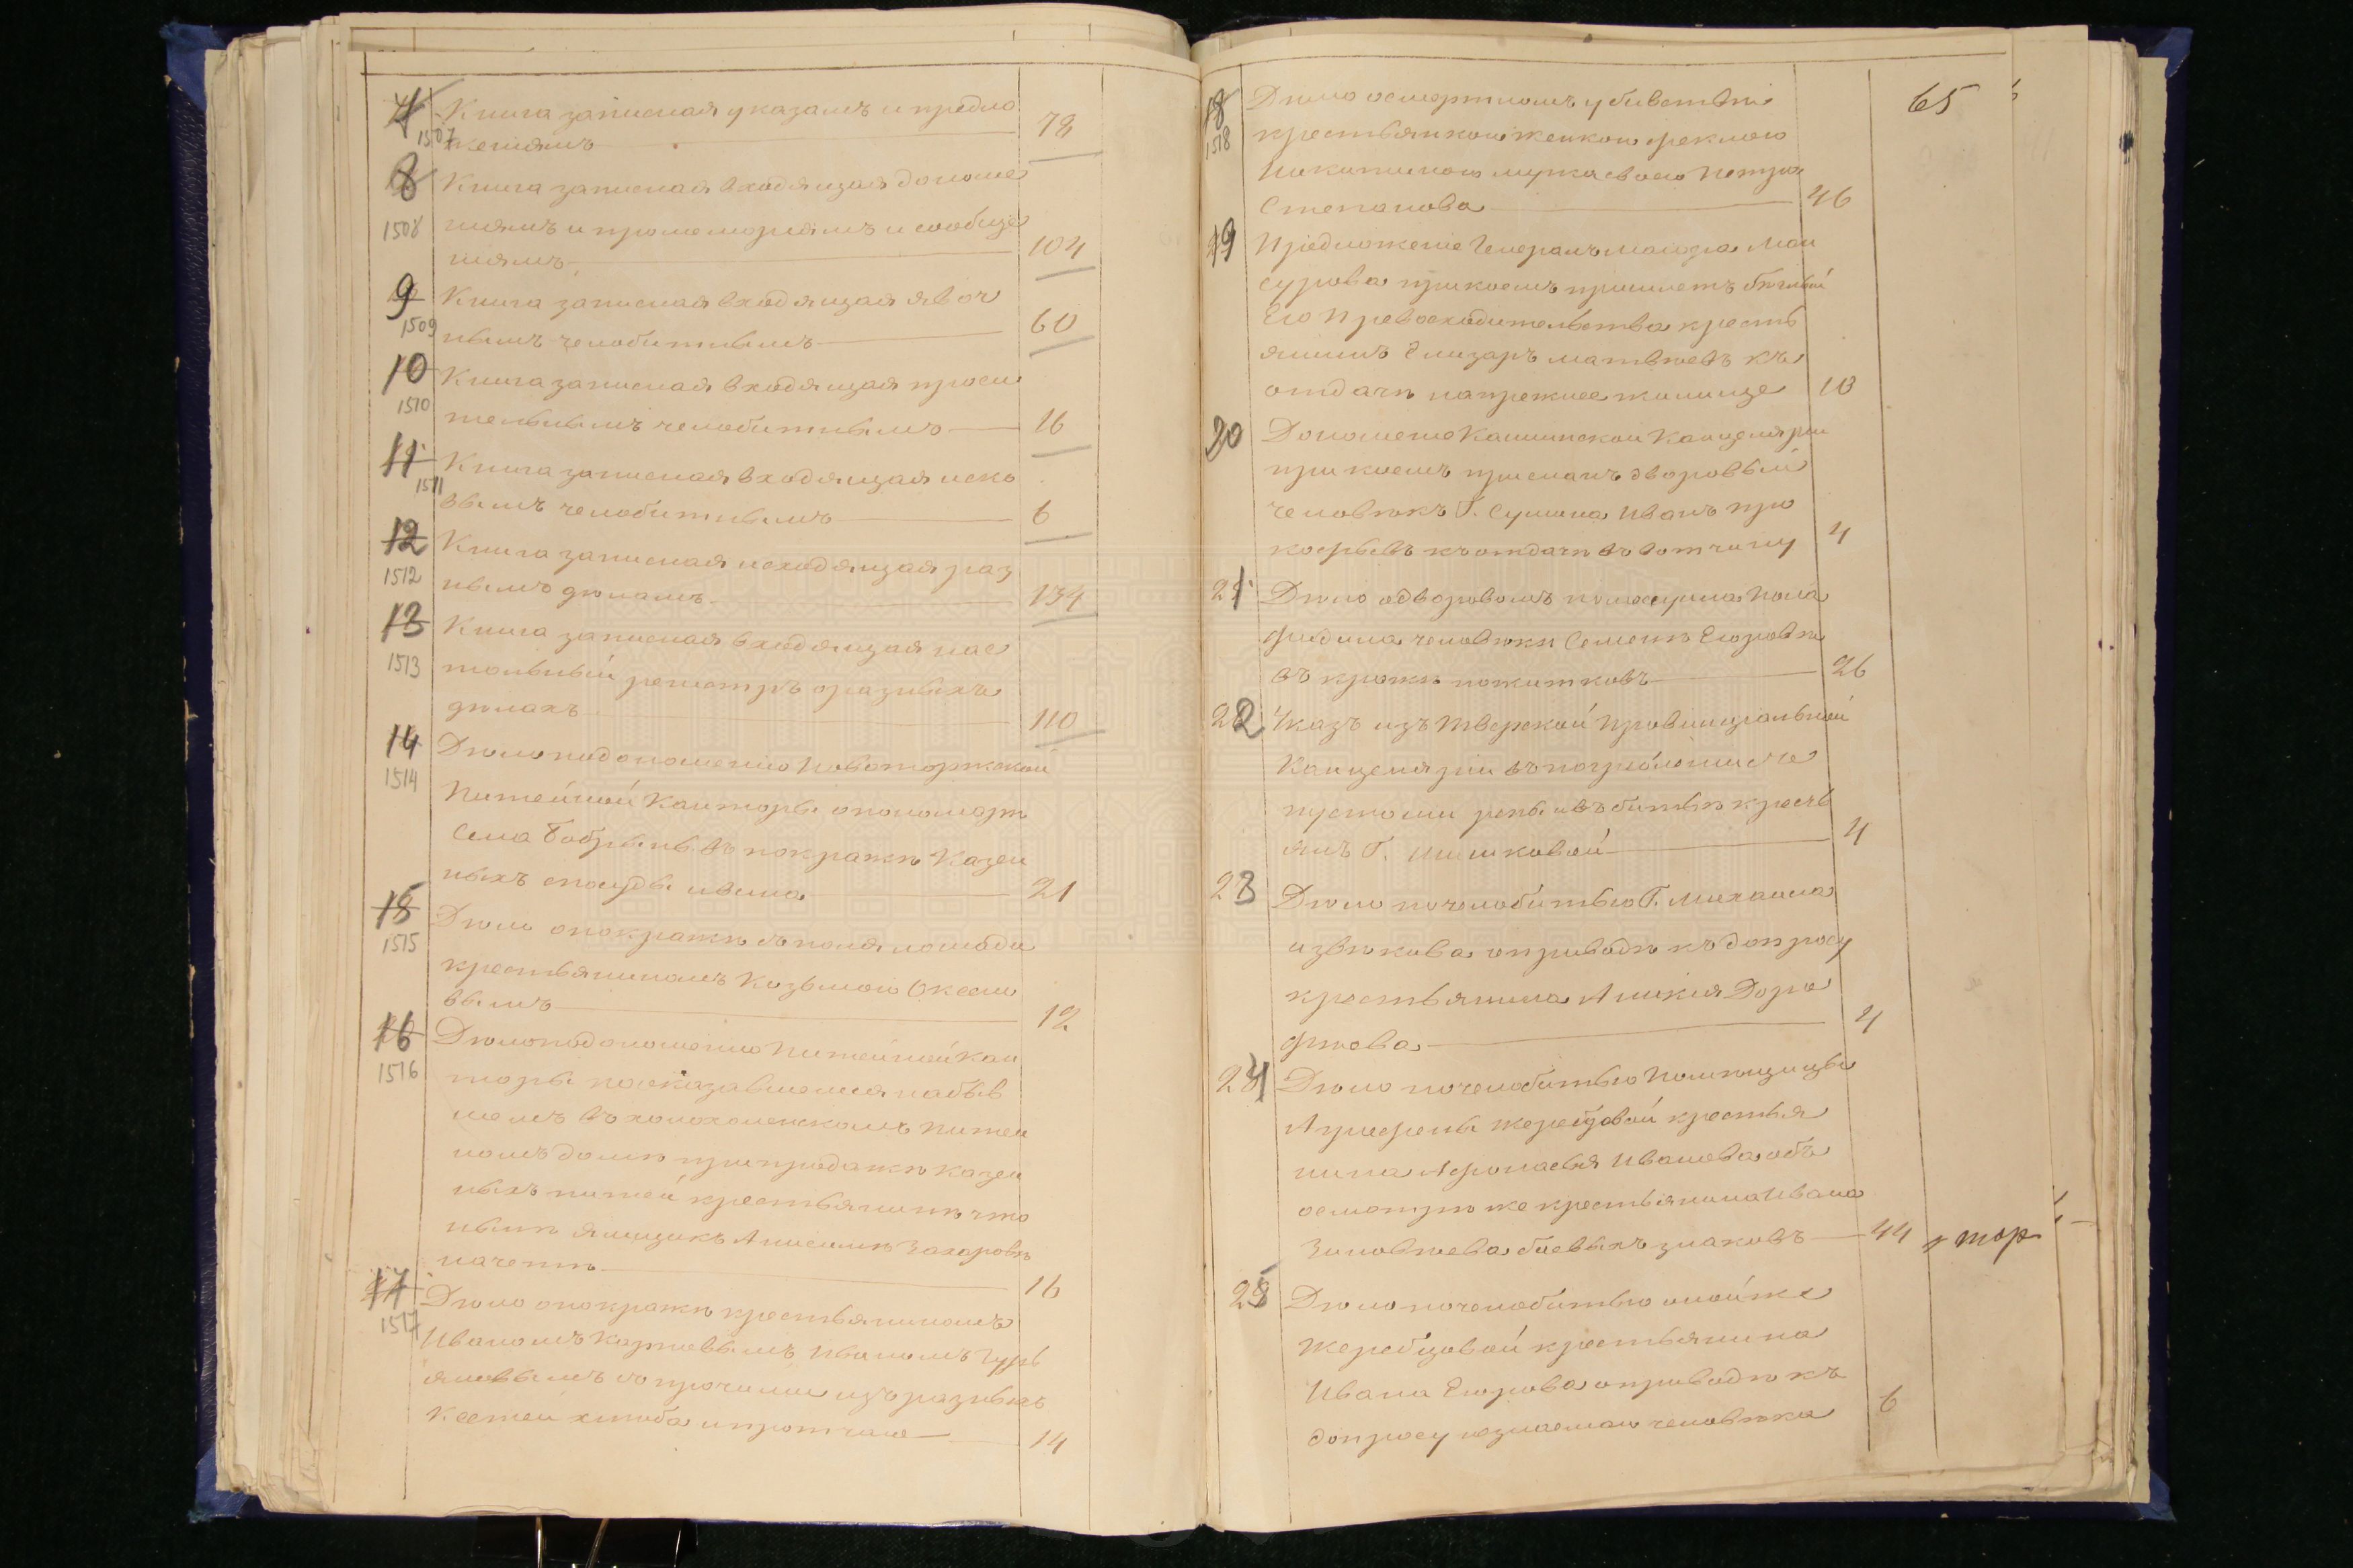 7 Книга записная указамъ и предло
1507 жениямъ 78
8 Книга записная входящая доноше
1508 ниямъ и промемориямъ и сообще
ниямъ 104
9 Книга записная входящая явоч
1509 нымъ челобитнымъ 60
10 Книга записная входящая проси
1510 тельнымъ челобитнымъ 16
11 Книга записная входящая иско
1511 вымъ челобитнымъ 6
12 Книга записная исходящая раз
1512 нымъ дѣламъ 134
13 Книга записная входящая нас
1513 тольный регистръ о разныхъ
дѣлахъ 110
14 Дѣло по доношению Новоторжской
1514 Питейной Канторы о пономарѣ
Села Бобрыны въ покражѣ Казен
ныхъ посуды и вина 21
15 Дѣло о покражѣ съ поля лошади
1515 крестьяниномъ Козьмою
вымъ 12
16 Дѣло по доношению Питейной Кан
1516 торы показавшемся на быв
шемъ въ холохоленскомъ питей
номъ домѣ при продажѣ казен
ныхъ питей крестьянинѣ что
нынѣ ямщикъ Анисимѣ Захаровѣ
начетѣ 16
17 Дѣло о покражѣ крестьяниномъ
1517 Иваномъ Карповымъ, Иваномъ Гурь
яновымъ съ прочими изъ разныхъ
Клетей хлѣба и протчаго 14
65
18 Дѣло о смертномъ убивствѣ
1518 крестьянкою женкою феклою
Никитиною мужа своего Петра
Степанова 46
19 Предложение Генералъ Маиора Ман
сурова при коемъ пришлетъ беглый
Его Превосходительства кресть
янинъ Елизаръ матвѣевъ къ
отдачѣ на прежнее жилище 10
20 Доношение Кашинской Канцелярии
при коемъ присланъ дворовый
человѣкъ Г. Сумина Иванъ про
кофьевъ къ отдачѣ въ вотчину 4
21 Дѣло о дворовомъ помещика Пола
человѣкѣ Семенѣ Егоровѣ
въ кражѣ пожитковъ 26
22 Указъ изъ Тверской Провинциальной
Канцелярии
пустоши и въ битьѣ кресть
янъ Г. Шишковой 4
23 Дѣло по челобитью Г. Михаила
извѣкова о приводѣ къ допросу
крестьянина Аникия Доро
фѣева 4
24 Дѣло по челобитью Помѣщицы
Агрефены Жеребцовой крестья
нина Афонасья Иванова объ
осмотрѣ же крестьянина Ивана
Зиновѣева боевыхъ знаковъ 44
25 Дѣло по челобитью оной же
Жеребцовой крестьянина
Ивана Егорова о приводѣ къ
допросу незнаемаго человѣка 6